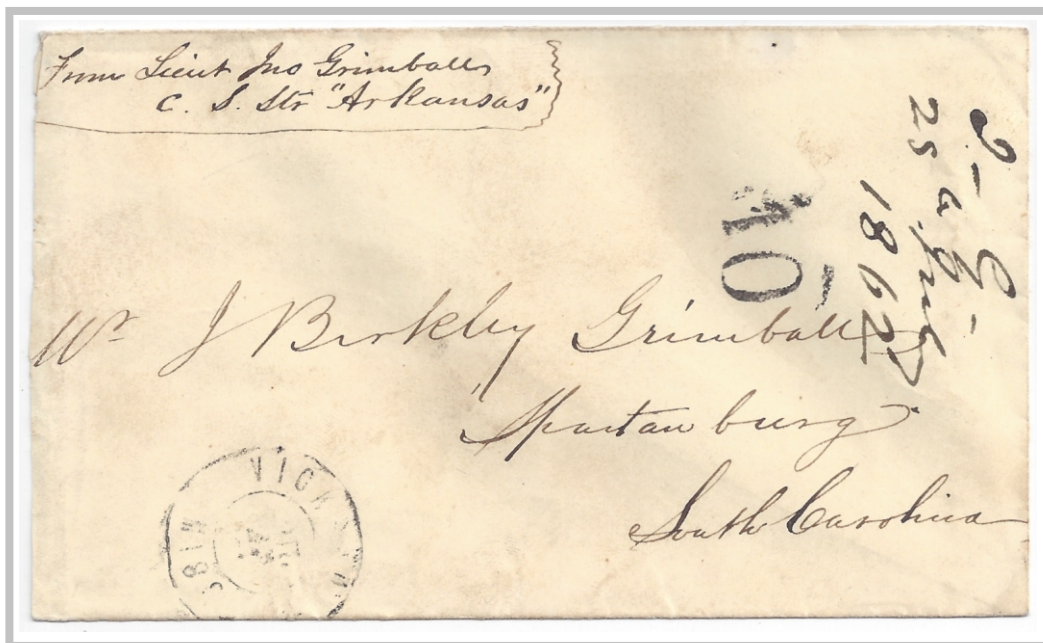 From Lieut Jno Grimball
C. S. Str "Arkansas"
10
25
1862
Mr J Berkley Grimball
Spartanburg
South Carolina